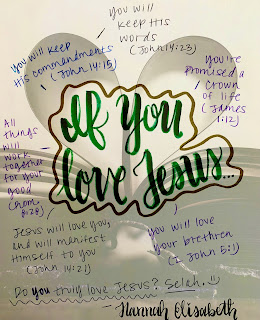 You will
keep His
words
(John 14:23)
You will keep
His commandments
(John 14:15)
You're
promised a
crown
of life
(James
1:12)
If You
love Jesus...
All
things
will
work
together
for your
good
(Rom.
8:28)
Jesus will love you,
and will manifest
Himself to you
(John 14:21)
You will love
your brethren
(1 John 5:1)
Do you truly love Jesus? Selah. :)
- Hannah Elisabeth